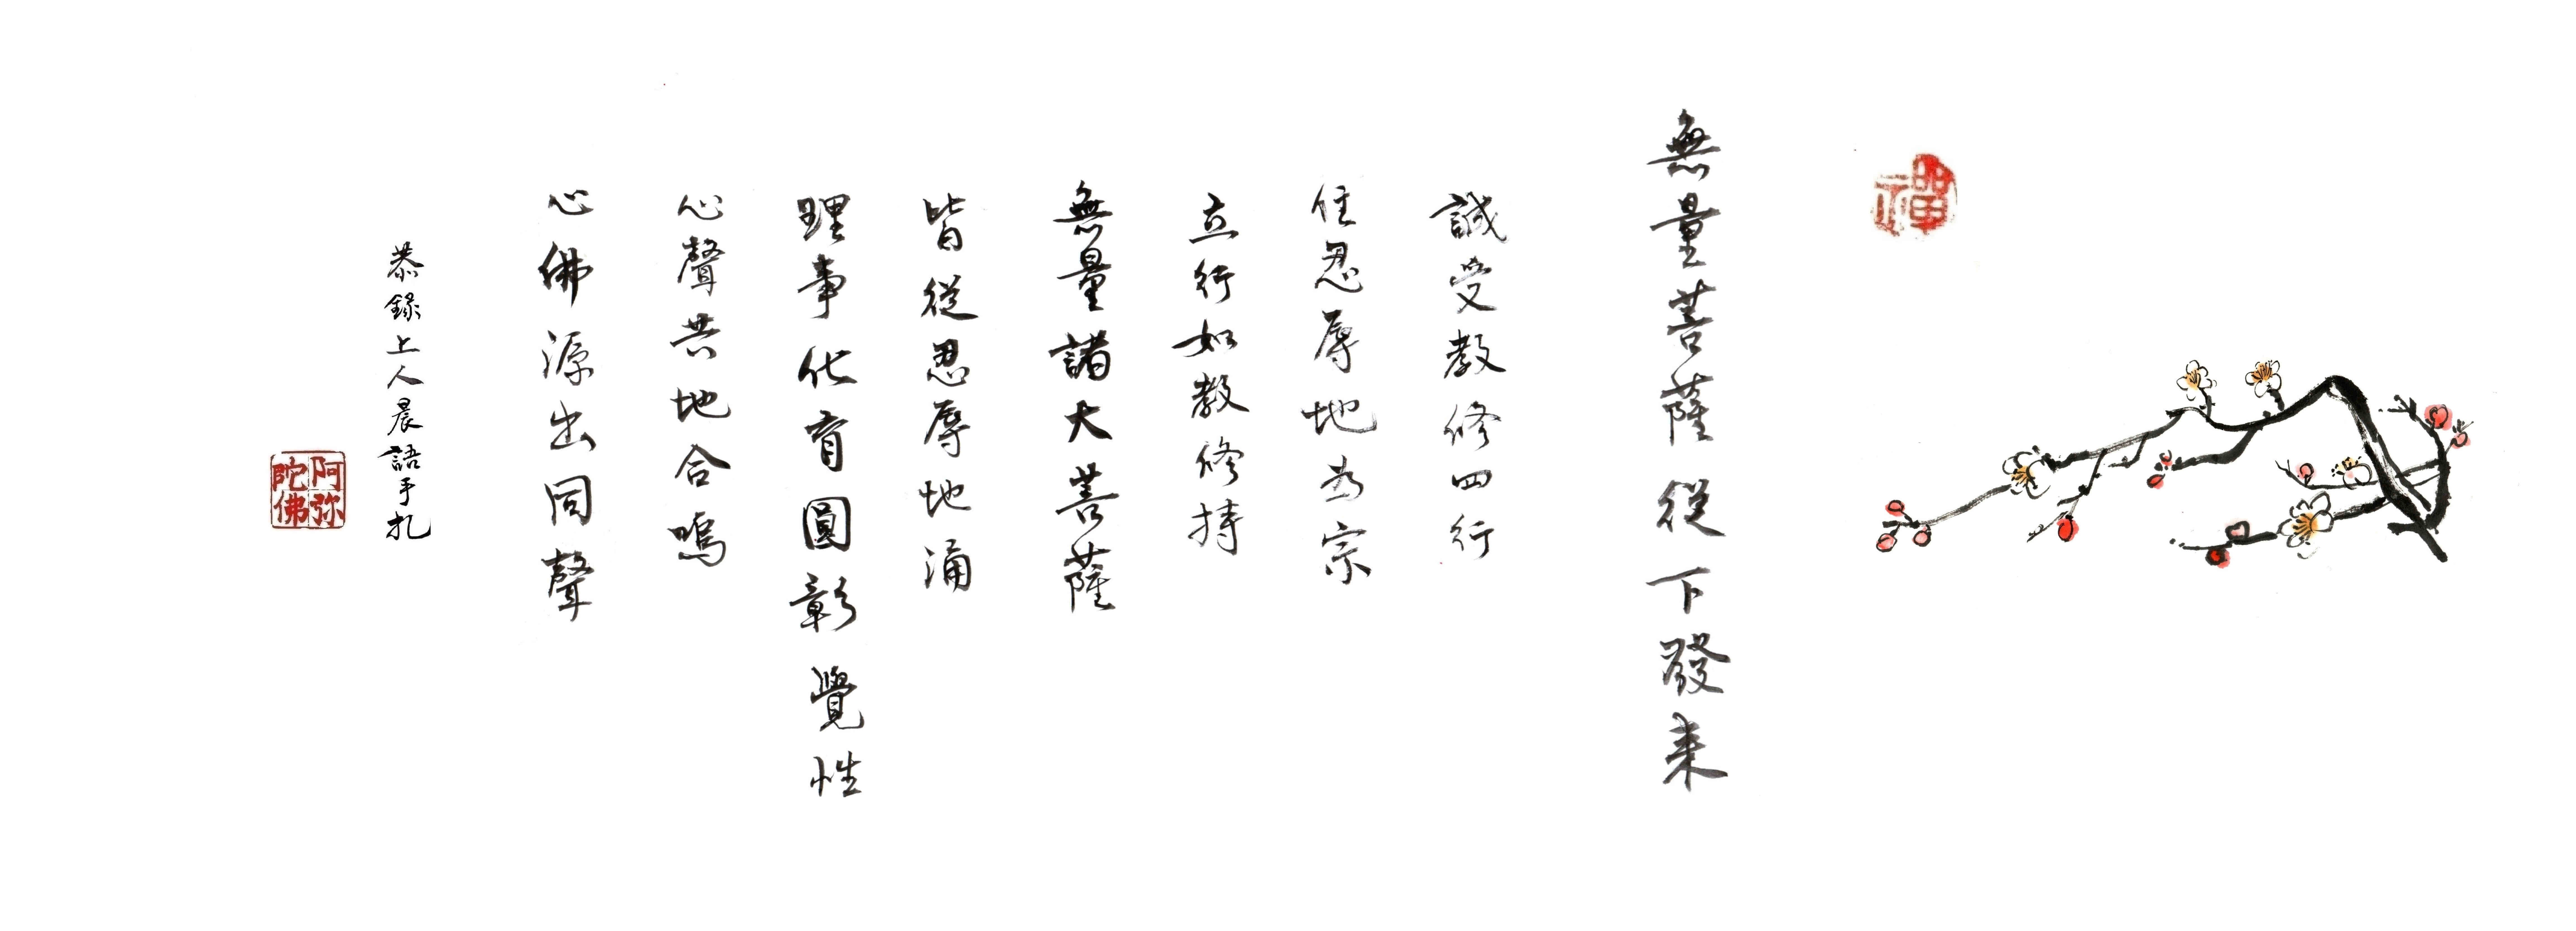 禪
無量菩薩從下發来
誠受教修四行
住忍辱地為宗
立行如教修持
無量諸大菩薩
皆從忍辱地涌
理事化育圓彰覺性
心聲共地合鳴
心佛源出同聲
恭錄上人晨語手札
阿弥陀佛